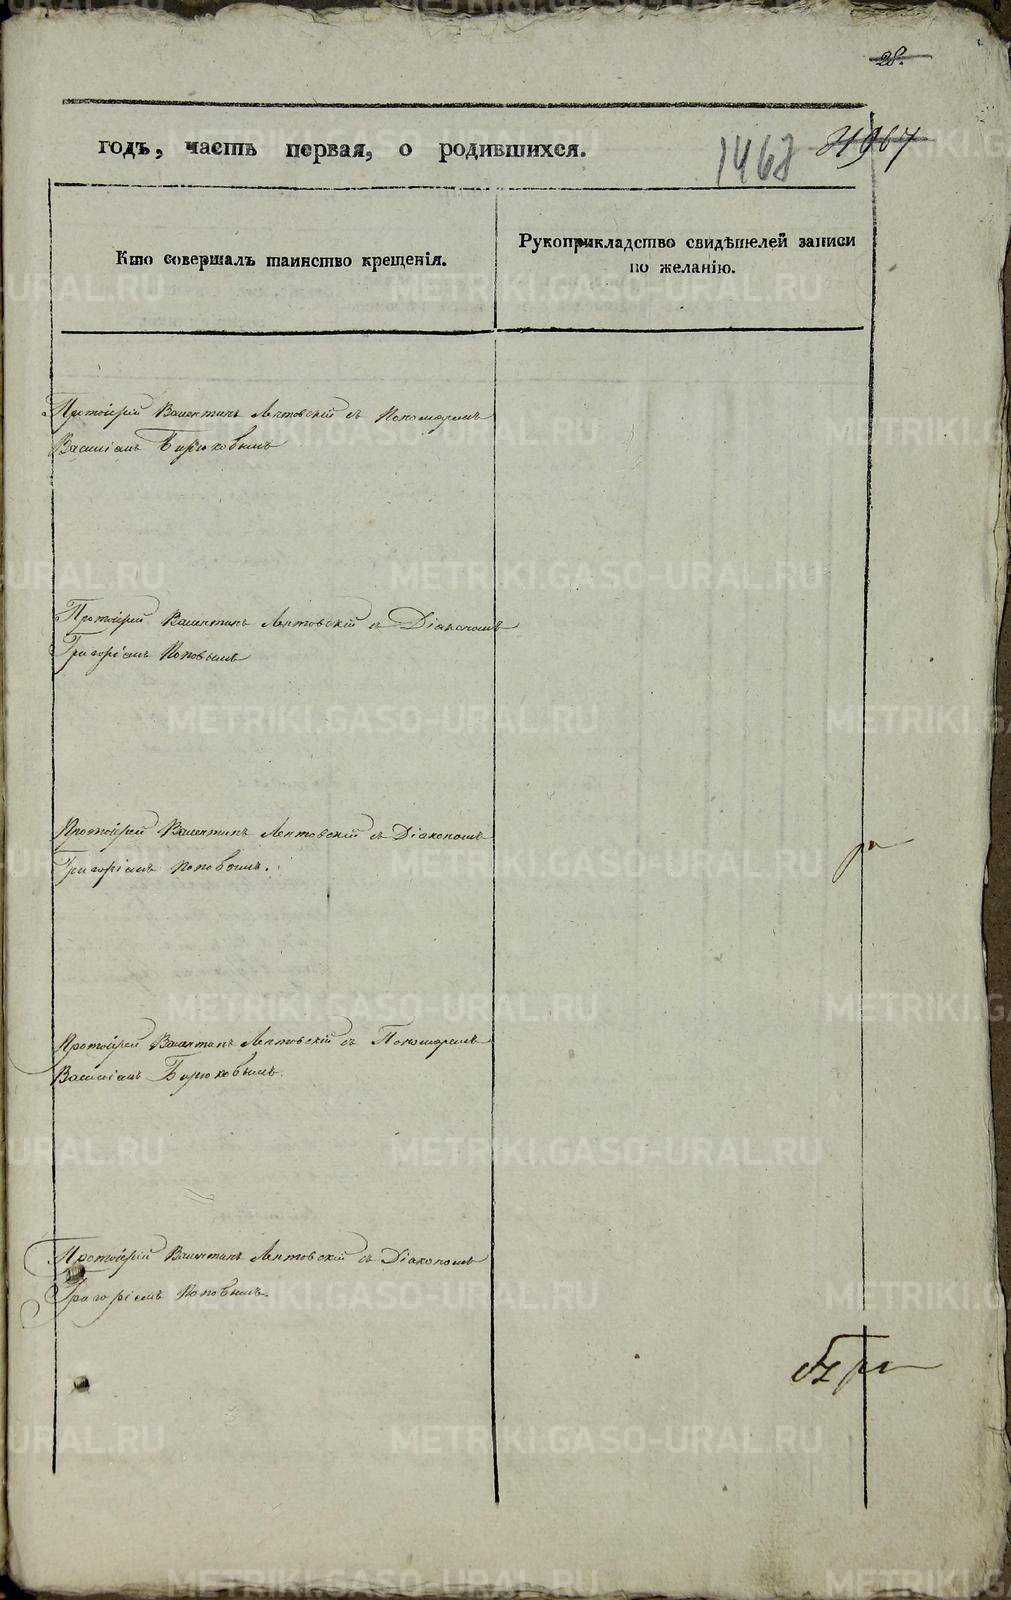 28.
годъ, часть первая, о родившихся.
1468
Кто совершалъ таинство крещенія.
Рукоприкладство свидѣтелей записи
по желанію.
Протоіерей Валентинъ Лептовскій съ Пономаремъ
Василіемъ Бирюковымъ
Протоіерей Валентинъ Лептовскій съ Діакономъ
Григоріемъ Поповымъ
Протоіерей Валентинъ Лептовскій съ Діакономъ
Григоріемъ Поповымъ.
Протоіерей Валентинъ Лептовскій съ Пономаремъ
Василіемъ Бирюковымъ.
Протоіерей Валентинъ Лептовскій съ Діакономъ
Григоріемъ Поповымъ.
METRIKI.GASO-URAL.RU